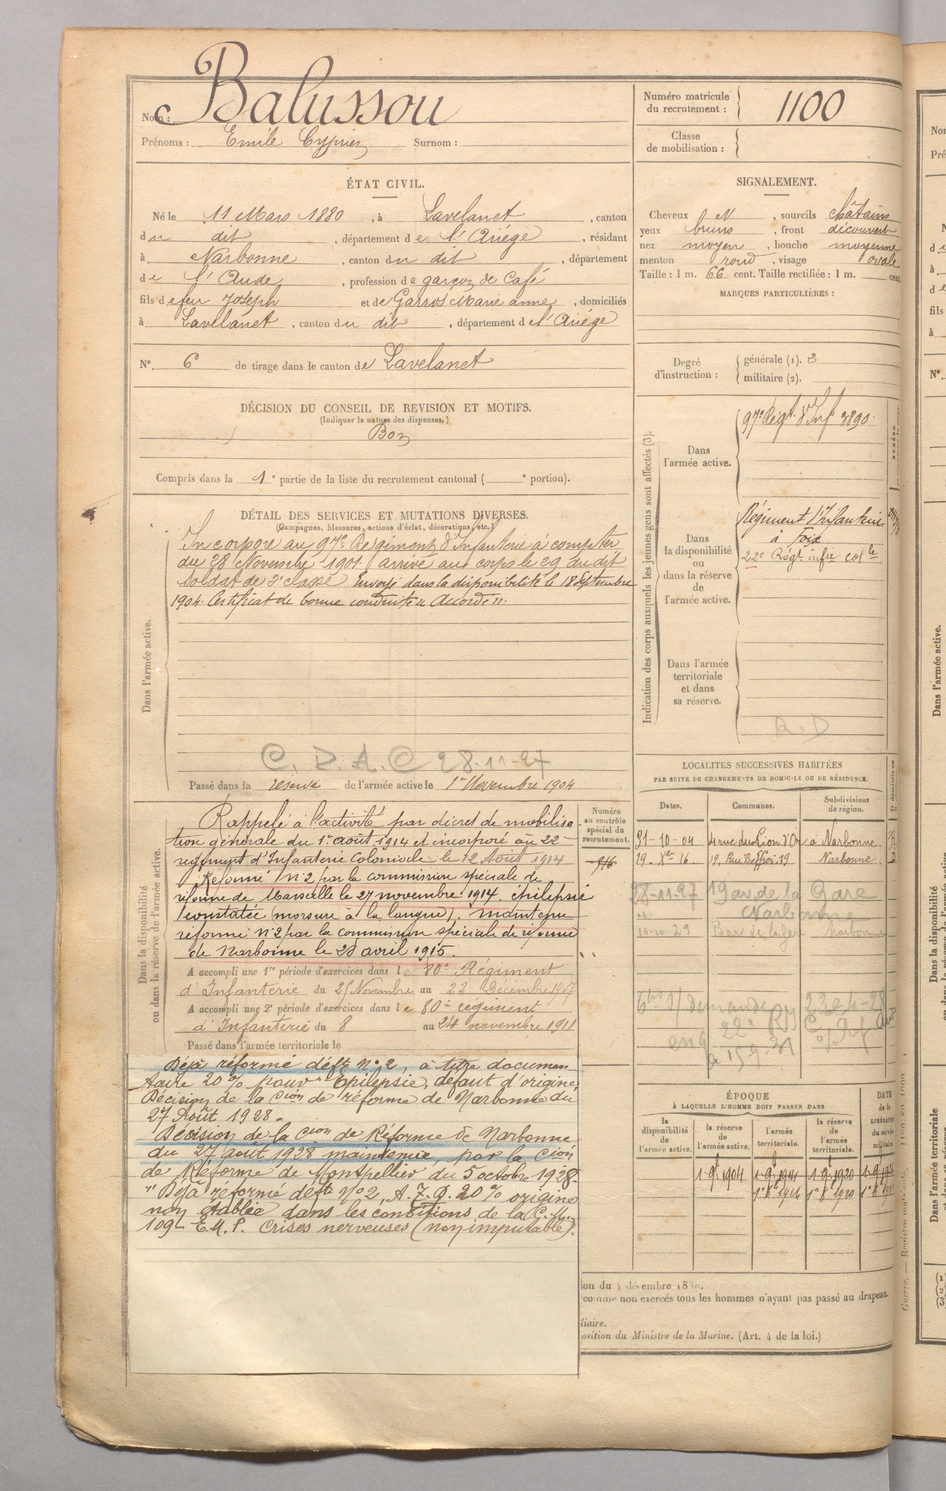 Nom : Balussou
Prénoms : Emile Cyprien Surnom :
ÉTAT CIVIL.
Né le 11 Mars 1880, à Lavelanet, canton
du dit, département de l'Ariège, résidant
à Narbonne, canton du dit, département
de l'Aude, profession de garçon de Café
fils de feu Joseph et de Garros Marie anne, domiciliés
à Lavelanet, canton du dit, département de l'Ariège
N° 6 de tirage dans le canton de Lavelanet
DÉCISION DU CONSEIL DE REVISION ET MOTIFS.
(Indiquer la nature des dispenses.)
Bon
Compris dans la 1e partie de la liste du recrutement cantonal ( e portion).
DÉTAIL DES SERVICES ET MUTATIONS DIVERSES.
(Campagnes, blessures, actions d'éclat, décorations, etc.)
Dans l'armée active.
Incorporé au 97e Régiment d'Infanterie à compter
du 28 Novembre 1901. arrivé au corps le 29 du dit
Soldat de 2e classe Envoyé dans la disponibilité le 18 Septembre
1904. Certificat de bonne conduite "Accordé".
C. D. A. C 28-11-27
Passé dans la réserve de l'armée active le 1er Novembre 1904
Dans la disponibilité
ou dans la réserve de l'armée active.
Rappelé à l'activité par décret de mobilisa-
tion générale du 1er août 1914 et incorporé au 22e
régiment d'Infanterie Coloniale le 12 Août 1914
Réformé n°2 par la commission spéciale de
réforme de Marseille le 27 novembre 1914. épilepsie
(constatée morsure à la langue). Maintenu
réformé n°2 par la commission spéciale de réforme
de Narbonne le 23 avril 1915.
A accompli une 1re période d'exercices dans le 80e Régiment
d'Infanterie du 25 Novembre au 22 Décembre 1907
A accompli une 2e période d'exercices dans le 80e régiment
d'Infanterie du 8 au 24 novembre 1911
Passé dans l'armée territoriale le
Déjà réformé déft n°2, à titre documen-
taire 20% pour Epilepsie, défaut d'origine,
Décision de la Cion de réforme de Narbonne du
27 Août 1928.
Décision de la Cion de Réforme de Narbonne
du 27 août 1928 maintenue, par la Cion
de Réforme de Montpellier du 5 octobre 1928.
"Déjà réformé déft n°2, A.F.I. 20% origine
non établie dans les conditions de la C. Mle
109 E.M.P. Crises nerveuses (non imputable).
Numéro matricule
du recrutement : 1100
Classe
de mobilisation :
SIGNALEMENT.
Cheveux N, sourcils châtains
yeux bruns, front découvert
nez moyen, bouche moyenne
menton rond, visage ovale
Taille : 1 m. 66 cent. Taille rectifiée : 1 m. cent.
MARQUES PARTICULIÈRES :
Degré
d'instruction :
générale (1). 3
militaire (2).
Indication des corps auxquels les jeunes gens sont affectés (3).
Dans
l'armée active.
97e Régt d'Inf 3890.
Dans
la disponibilité
ou
dans la réserve
de
l'armée active.
Régiment d'Infanterie
à Foix
22e Régt infie colle
Dans l'armée
territoriale
et dans
sa réserve.
R.D
LOCALITES SUCCESSIVES HABITÉES
PAR SUITE DE CHANGEMENTS DE DOMICILE OU DE RÉSIDENCE.
Dates. Communes. Subdivisions
de région.
31-10-04 4 rue du Lion d'Or à Narbonne
19. Narbonne
28-11-27 19 av de la Gare
Narbonne
Numéro
au contrôle
spécial du
recrutement.
ÉPOQUE
À LAQUELLE L'HOMME DOIT PASSER DANS
la
disponibilité
de
l'armée active.
la réserve
de
l'armée active.
l'armée
territoriale.
la réserve
de
l'armée
territoriale.
DATE
de la
LIBÉRATION
du service
militaire
1-9bre 1904
ion du 4 décembre 1889.
comme non exercés tous les hommes n'ayant pas passé au drapeau
liaire.
osition du Ministre de la Marine. (Art. 4 de la loi.)